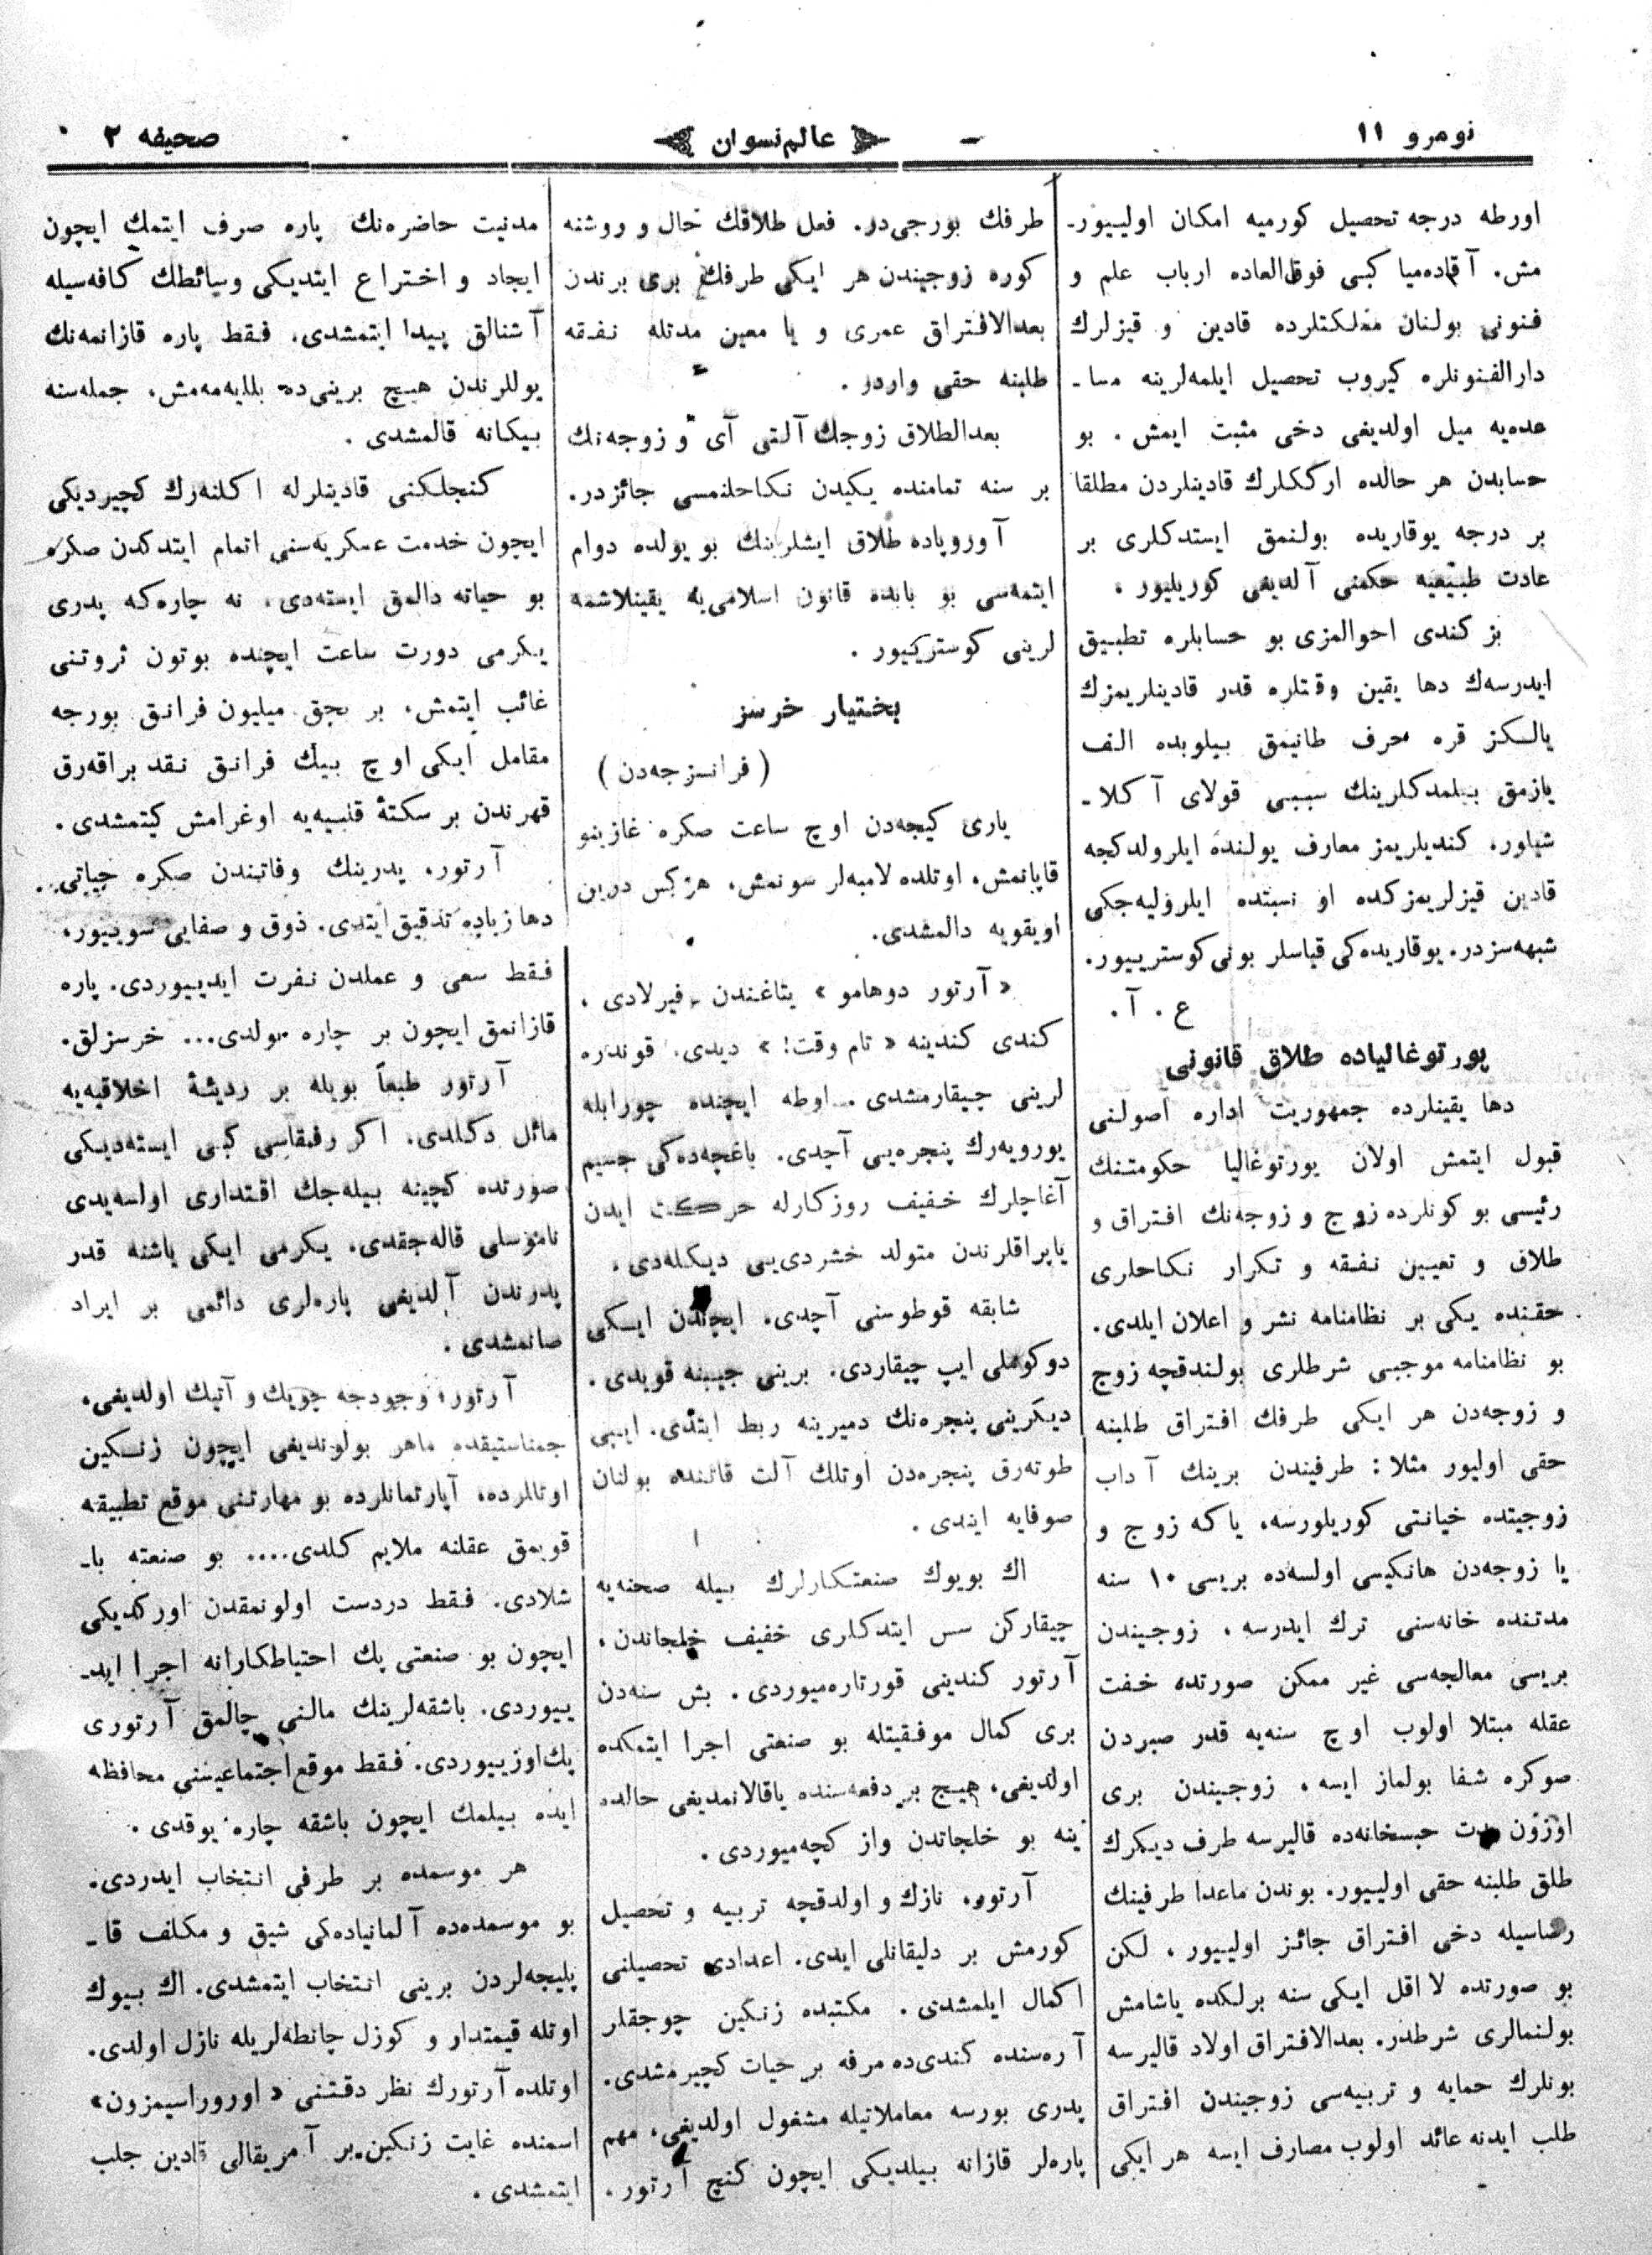 نومرو ١١
عالم نسوان
صحیفه ٢
اورطه درجه تحصیل کورمیه امکان اولییور-
مش. آقاده‌میا کبی فوق‌العاده ارباب علم و
فنونی بولنان مملکتلرده قادین و قیزلرك
دارالفنونلره کیروب تحصیل ایلمه‌لرینه مسا-
عده‌یه میل اولدیغی دخی مثبت ایمش. بو
حسابدن هر حالده ارککلرك قادینلردن مطلقا
بر درجه یوقاریده بولنمق ایستدکلری بر
عادت طبیعیه حکمنی آلدیغی کوریلیور.
بز کندی احوالمزی بو حسابلره تطبیق
ایدرسه‌ك دها یقین وقتلره قدر قادینلریمزك
یالکز قره حرف طانیمق بیلوبده الف
یازمق بیلمدکلرینك سببی قولای آکلا-
شیلور، کندیلریمز معارف یولنده ایلرولدکجه
قادین قیزلریمزکده او نسبتده ایلرولیه‌جکی
شبهه‌سزدر. یوقاریده‌کی قیاسلر بونی کوسترییور.
ع. آ.
پورتوغالیاده طلاق قانونی
دها یقینلرده جمهوریت اداره اصولنی
قبول ایتمش اولان پورتوغالیا حکومتنك
رئیسی بو کونلرده زوج و زوجه‌نك افتراق و
طلاق و تعیین نفقه و تکرار نکاحلری
حقنده یکی بر نظامنامه نشر و اعلان ایلدی.
بو نظامنامه موجبی شرطلری بولندقچه زوج
و زوجه‌دن هر ایکی طرفك افتراق طلبنه
حقی اولیور مثلا: طرفیندن برینك آداب
زوجیتده خیانتی کوریلورسه، یاکه زوج و
یا زوجه‌دن هانکیسی اولسه‌ده بریسی ١٠ سنه
مدتنده خانه‌سنی ترك ایدرسه، زوجیندن
بریسی معالجه‌سی غیر ممکن صورتده خفت
عقله مبتلا اولوب اوچ سنه‌یه قدر صبردن
صوکره شفا بولماز ایسه، زوجیندن بری
اوزون مدت حبسخانه‌ده قالیرسه طرف دیکرك
طلق طلبنه حقی اولییور. بوندن ماعدا طرفینك
رضاسیله دخی افتراق جائز اولییور، لکن
بو صورتده لااقل ایکی سنه برلکده یاشامش
بولنمالری شرطدر. بعدالافتراق اولاد قالیرسه
بونلرك حمایه و تربیه‌سی زوجیندن افتراق
طلب ایدنه عائد اولوب مصارف ایسه هر ایکی
طرفك بورجی‌در. فعل طلاقك حال و روشنه
کوره زوجیندن هر ایکی طرفك بری برندن
بعدالافتراق عمری و یا معین مدتله نفقه
طلبنه حقی واردر.
بعدالطلاق زوجك آلتی آی و زوجه‌نك
بر سنه تمامنده یکیدن نکاحلنمسی جائزدر.
آوروپاده طلاق ایشلرینك بو یولده دوام
ایتمه‌سی بو بابده قانون اسلامی‌یه یقینلاشمه
لرینی کوسترییور.
بختیار خرسز
(فرانسزجه‌دن)
یاری کیجه‌دن اوچ ساعت صکره غازینو
قاپانمش، اوتلده لامبه‌لر سونمش، هرکس درین
اویقویه دالمشدی.
«آرتور دوهامو» یتاغندن فیرلادی،
کندی کندینه «تام وقت!» دیدی. قوندره
لرینی چیقارمشدی. اوطه ایچنده چورابله
یورویه‌رك پنجره‌یی آچدی. باغچه‌ده‌کی جسیم
آغاچلرك خفیف روزکارله حرکت ایدن
یاپراقلرندن متولد خشردی‌یی دیکله‌دی.
شابقه قوطوسنی آچدی، ایچندن ایکی
دوکوملی ایپ چیقاردی. برینی جیبنه قویدی.
دیکرینی پنجره‌نك دمیرینه ربط ایتدی. ایپی
طوته‌رق پنجره‌دن اوتلك آلت قاتنده بولنان
صوفایه ایندی.
اك بویوك صنعتکارلرك بیله صحنه‌یه
چیقارکن سس ایتدکلری خفیف خلجاندن،
آرتور کندینی قورتاره‌میوردی. بش سنه‌دن
بری کمال موفقیتله بو صنعتی اجرا ایتمکده
اولدیغی، هیچ بر دفعه‌سنده یاقالانمدیغی حالده
ینه بو خلجاندن واز کچه‌میوردی.
آرتور، نازك و اولدقچه تربیه و تحصیل
کورمش بر دلیقانلی ایدی. اعدادی تحصیلنی
اکمال ایلمشدی. مکتبده زنکین چوجقلر
آره‌سنده کندی‌ده مرفه بر حیات کچیرمشدی.
پدری بورسه معاملاتیله مشغول اولدیغی، مهم
پاره‌لر قازانه بیلدیکی ایچون کنج آرتور.
مدنیت حاضره‌نك پاره صرف ایتمك ایچون
ایجاد و اختراع ایتدیکی وسائطك کافه‌سیله
آشنالق پیدا ایتمشدی، فقط پاره قازانمه‌نك
یوللرندن هیچ برینی‌ده بللیه‌مه‌مش، جمله‌سنه
بیکانه قالمشدی.
کنجلکنی قادینلرله اکلنه‌رك کچیردیکی
ایچون خدمت عسکریه‌سنی اتمام ایتدکدن صکره
بو حیاته دالمق ایسته‌دی، نه چاره‌که پدری
یکرمی دورت ساعت ایچنده بوتون ثروتنی
غائب ایتمش، بر بچق میلیون فرانق بورجه
مقابل ایکی اوچ بیك فرانق نقد براقه‌رق
قهرندن بر سکتهٔ قلبیه‌یه اوغرامش کیتمشدی.
آرتور، پدرینك وفاتندن صکره حیاتی
دها زیاده تدقیق ایتدی. ذوق و صفایی سویییور،
فقط سعی و عملدن نفرت ایدییوردی. پاره
قازانمق ایچون بر چاره بولدی... خرسزلق.
آرتور طبعاً بویله بر ردیئهٔ اخلاقیه‌یه
مائل دکلدی. اکر رفقاسی کبی ایسته‌دیکی
صورتده کچینه بیله‌جك اقتداری اولسه‌یدی
ناموسلی قاله‌جقدی. یکرمی ایکی یاشنه قدر
پدرندن آلدیغی پاره‌لری دائمی بر ایراد
صانمشدی.
آرتور، وجودجه چویك و آتیك اولدیغی،
جمناستیقده ماهر بولوندیغی ایچون زنکین
اوتللرده، آپارتمانلرده بو مهارتنی موقع تطبیقه
قویمق عقلنه ملایم کلدی.... بو صنعته با-
شلادی. فقط دردست اولونمقدن اورکدیکی
ایچون بو صنعتی پك احتیاطکارانه اجرا اید-
ییوردی. باشقه‌لرینك مالنی چالمق آرتوری
پك اوزییوردی. فقط موقع اجتماعیسنی محافظه
ایده بیلمك ایچون باشقه چاره یوقدی.
هر موسمده بر طرفی انتخاب ایدردی.
بو موسمده‌ده آلمانیاده‌کی شیق و مکلف قا-
پلیجه‌لردن برینی انتخاب ایتمشدی. اك بیوك
اوتله قیمتدار و کوزل چانطه‌لریله نازل اولدی.
اوتلده آرتورك نظر دقتنی «اورورا سیمزون»
اسمنده غایت زنکین بر آمریقالی قادین جلب
ایتمشدی.